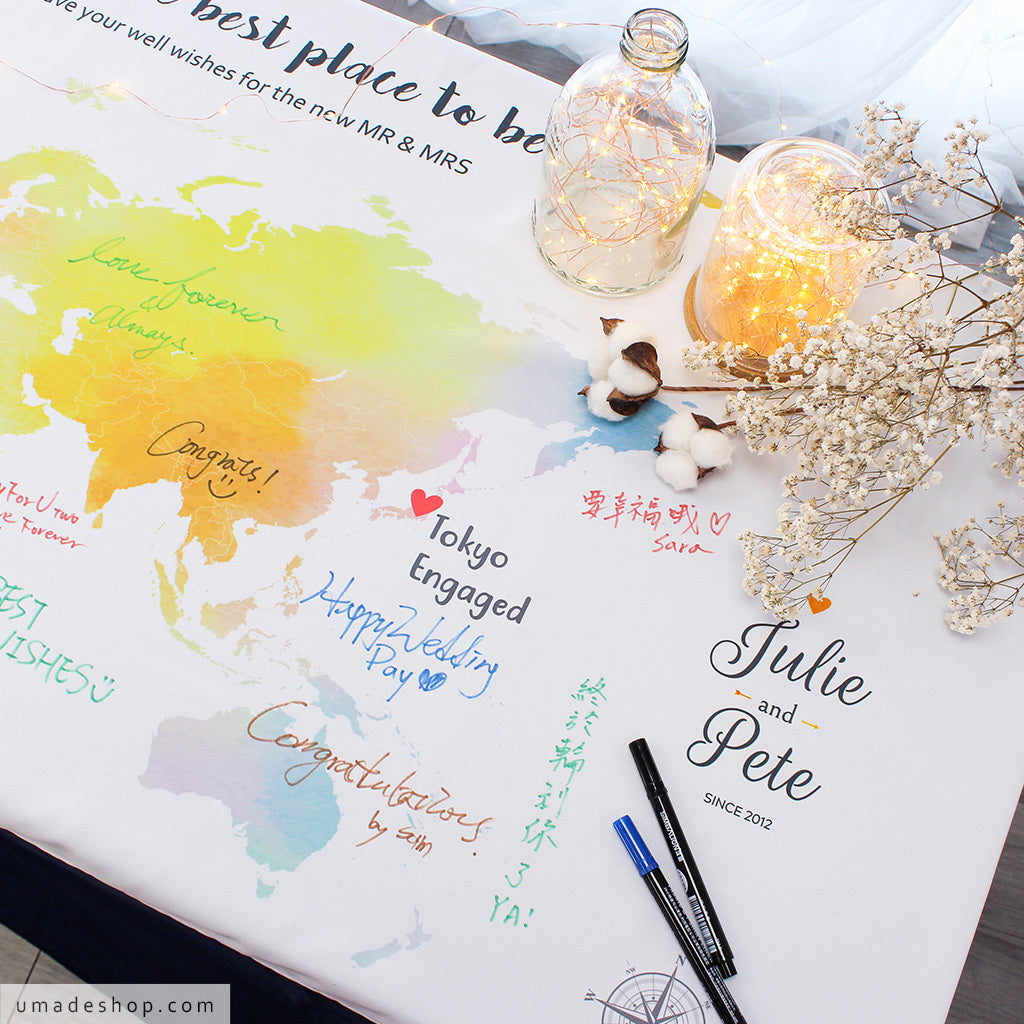 best place to be
your well wishes for the new MR & MRS
love forever
&
Always.
Congrats!
For U two
Forever
WISHES
Tokyo
Engaged
Happy Wedding
Day
要幸福哦♡
Sara
Congratulations.
by Sam
終於輪到你了
YA!
Julie
and
Pete
SINCE 2012
NW
N
W
umadeshop.com